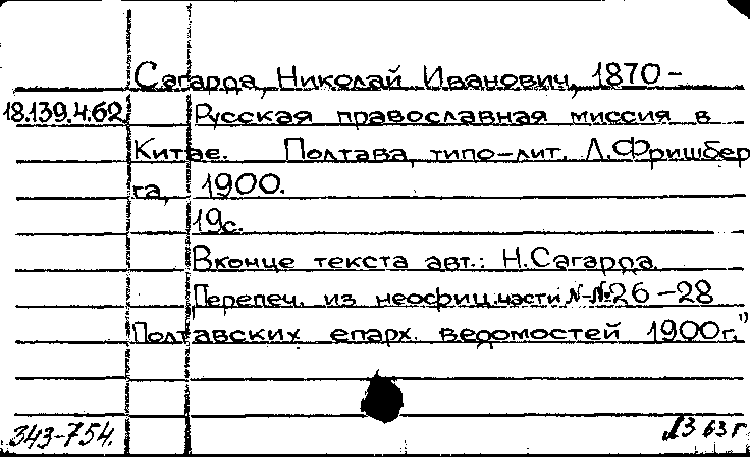 Сагарда, Николай Иванович, 1870 -
18.139.4.62 Русская православная миссия в
Китае. Полтава, типо-лит. Л. Фришбер
га, 1900.
19с.
В конце текста авт.: Н. Сагарда.
Перепеч. из неофиц. части №№ 26-28
Полтавских епарх. ведомостей 1900г."
343-754. ЛЗ 63 г